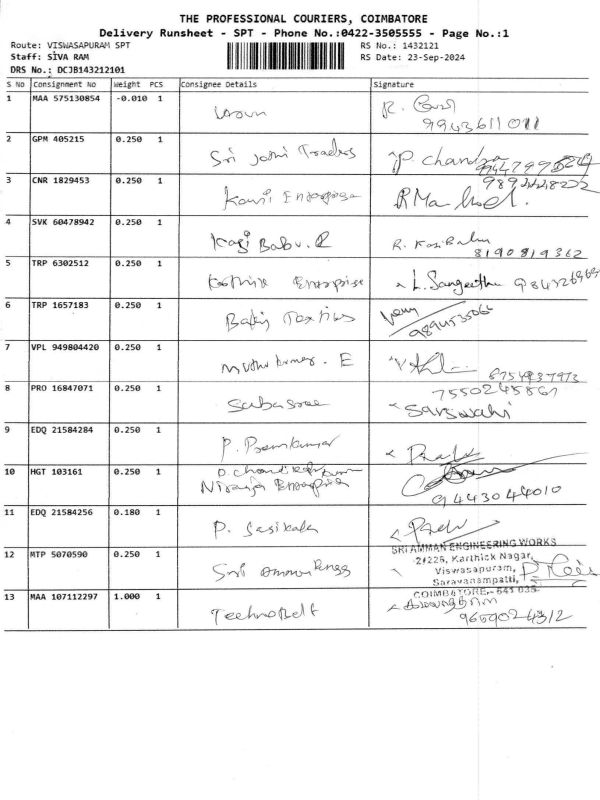 THE PROFESSIONAL COURIERS, COIMBATORE
Delivery Runsheet - SPT - Phone No.:0422-3505555 - Page No.:1
Route: VISWASAPURAM SPT RS No.: 1432121
Staff: SIVA RAM RS Date: 23-Sep-2024
DRS No.: DCJB143212101
S No Consignment No Weight PCS Consignee Details Signature
1 MAA 575130854 -0.010 1
9943611011
2 GPM 405215 0.250 1
Sri Jothi Traders P. Chandra
3 CNR 1829453 0.250 1 9894448222
Enterprise
4 SVK 60478942 0.250 1
Kasi Babu. R R. Kasi Babu
8190819362
5 TRP 6302512 0.250 1
Enterprise L. Sangeetha
6 TRP 1657183 0.250 1
7 VPL 949804420 0.250 1
8754937973
8 PRO 16847071 0.250 1 7550245861
Sabasree
9 EDQ 21584284 0.250 1
P. Premkumar
10 HGT 103161 0.250 1
Niranja Enterprises
9443044010
11 EDQ 21584256 0.180 1
P. Sasikala
SRI AMMAN ENGINEERING WORKS
12 MTP 5070590 0.250 1 2/226, Karthick Nagar,
Sri Amman Engg Viswasapuram,
Saravanampatti,
COIMBATORE - 641 035
13 MAA 107112297 1.000 1
Technobelt 9659024312